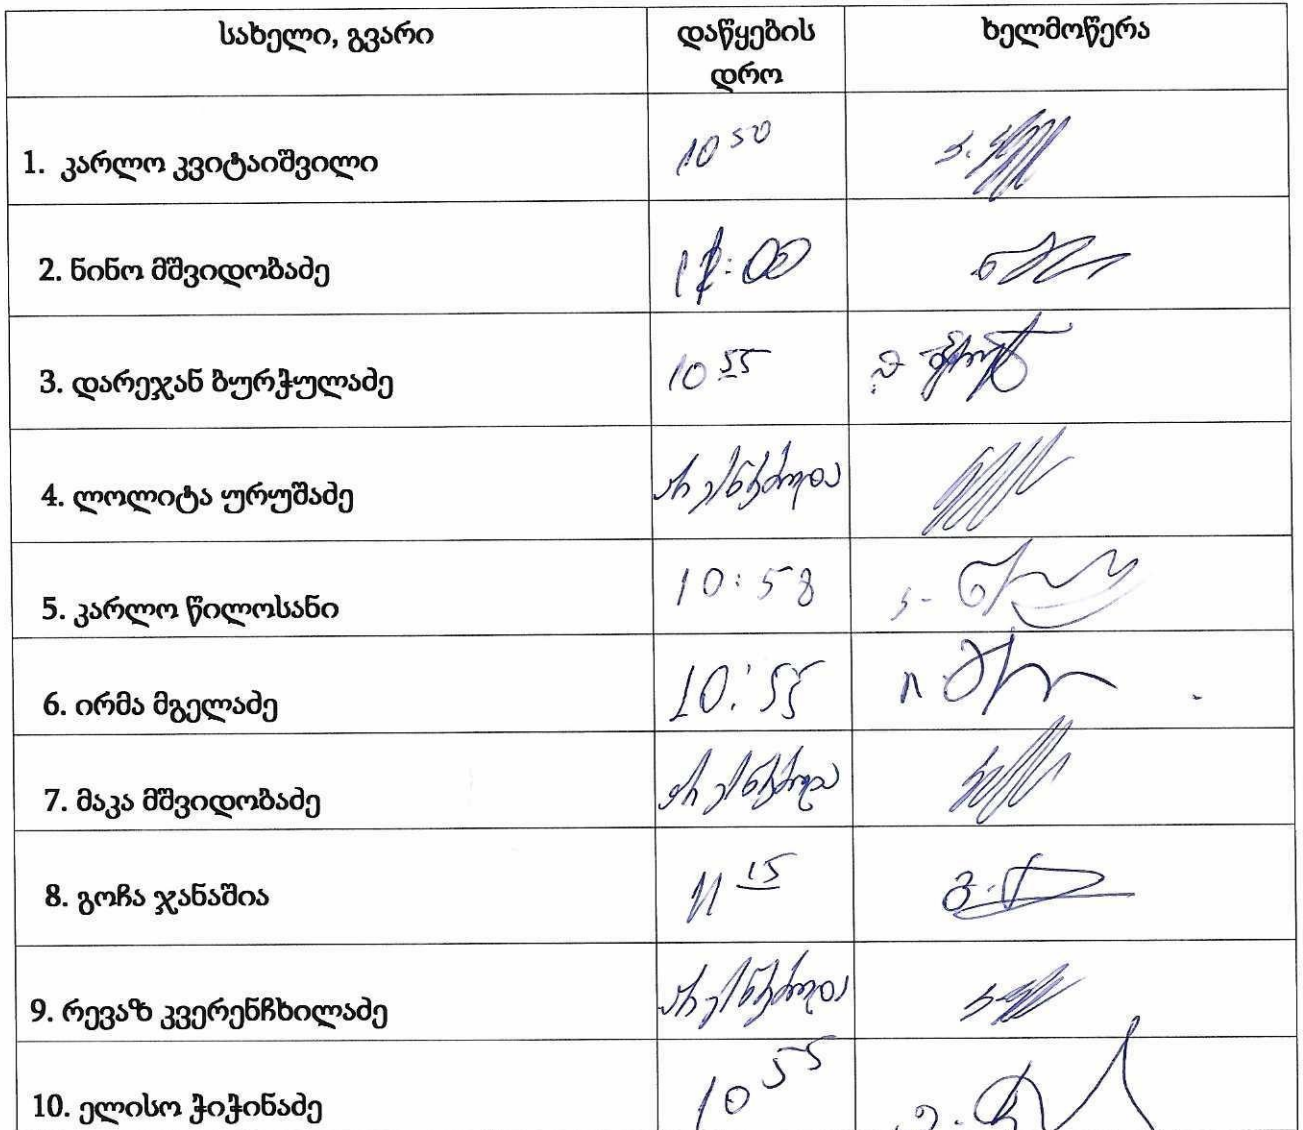 სახელი, გვარი
დაწყების
დრო
ხელმოწერა
1. კარლო კვიტაიშვილი
10 50
2. ნინო მშვიდობაძე
:00
3. დარეჯან ბურჭულაძე
10 55
4. ლოლიტა ურუშაძე
არ ესწრებოდა
5. კარლო წილოსანი
10:58
6. ირმა მგელაძე
10:55
7. მაკა მშვიდობაძე
არ ესწრებოდა
8. გოჩა ჯანაშია
11 15
9. რევაზ კვერენჩხილაძე
არ ესწრებოდა
10. ელისო ჭიჭინაძე
10 55